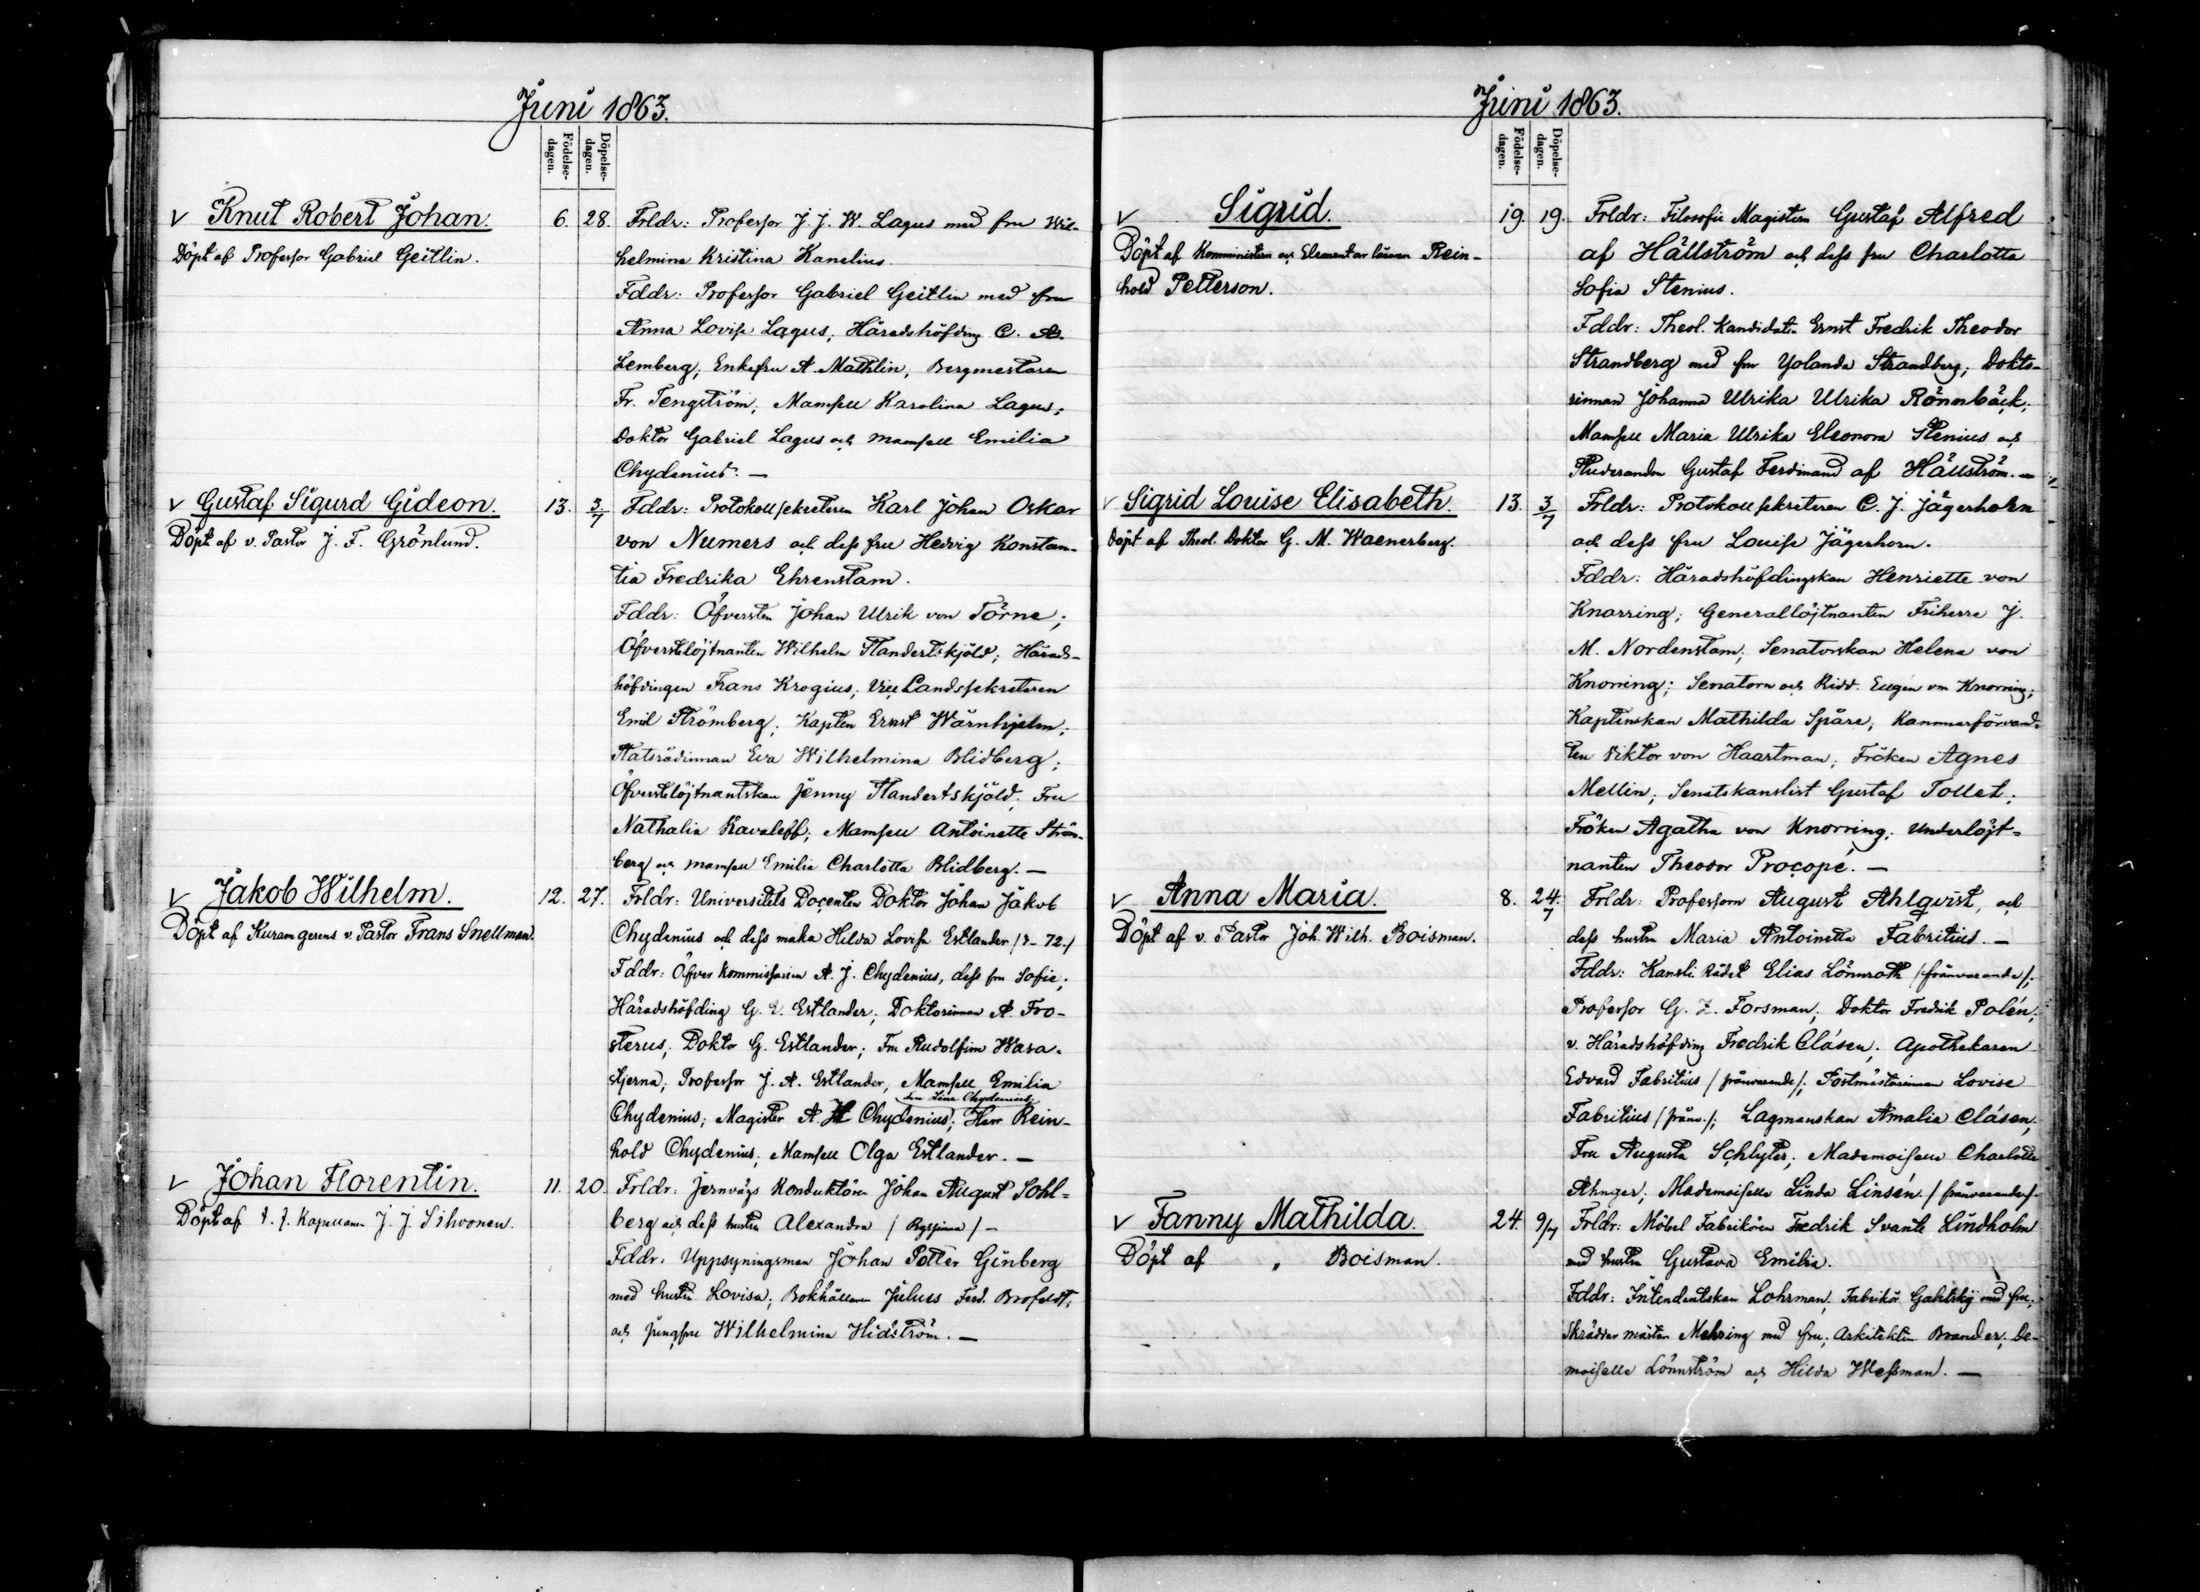 Juni 1863.
Födelse-
dagen.
Döpelse-
dagen.
Knut Robert Johan.
Döpt af Professor Gabriel Geitlin.
6. 28. Frldr: Professor J. J. W. Lagus med fru Wil-
helmina Kristina Kanelius.
Fddr: Professor Gabriel Geitlin med fru
Anna Lovisa Lagus, Häradshöfding C. A.
Lemberg, Enkefru A. Mathlin, Bergmestaren
Fr. Tengström, Mamsell Karolina Lagus;
Doktor Gabriel Lagus och mamsell Emilia
Chydenius. —
Gustaf Sigurd Gideon.
Döpt af v. Pastor J. F. Grönlund.
13. 3/7 Fddr: Protokollsekreteren Karl Johan Oskar
von Numers och dess fru Hedvig Konstan-
tia Fredrika Ehrenstam.
Fddr: Öfversten Johan Ulrik von Törne;
Öfverstlöjtnanten Wilhelm Standertskjöld; Härads-
höfdingen Frans Krogius; Vice Landssekreteren
Emil Strömberg; Kapten Ernst Wärnhjelm;
Statsrådinnan Eva Wilhelmina Blidberg;
Öfverstlöjtnantskan Jenny Standertskjöld; Fru
Nathalia Kavaleff; Mamsell Antoinette Ström-
berg och mamsell Emilia Charlotta Blidberg. —
Jakob Wilhelm.
Döpt af Kuram gerens v. Pastor Frans Snellman.
12. 27. Frldr: Universitets Docenten Doktor Johan Jakob
Chydenius och dess maka Hilda Lovisa Estlander
Fddr: Öfver kommissarien A. J. Chydenius, dess fru Sofie;
Häradshöfding G. E. Estlander; Doktorinnan A. Fro-
sterus; Doktor G. Estlander; Fru Rudolfina Wasa-
stjerna; Professor J. A. Estlander, Mamsell Emilia
Chydenius; Magister A. H. Chydenius; Herr Rein-
hold Chydenius; Mamsell Olga Estlander. —
Johan Florentin.
Döpt af t. f. Kapellanen J. J. Sihvonen.
11. 20. Frldr: Jernvägs Konduktören Johan August Sohl-
berg och dess hustru Alexandra / Ryssinna / —
Fddr. Uppsyningsman Johan Potter Ginberg
med hustru Lovisa; Bokhållaren Julius Ferd. Brofeldt;
och jungfru Wilhelmina Hidström. —
Juni 1863.
Födelse-
dagen.
Döpelse-
dagen.
Sigrid.
Döpt af Komministern och Elementar läraren Rein-
hold Petterson.
19. 19. Frldr: Filosofie Magistern Gustaf Alfred
af Hällström och dess fru Charlotta
Sofia Stenius.
Fddr: Theol. Kandidaten Ernst Fredrik Theodor
Strandberg med fru Yolanda Strandberg; Dokto-
rinnan Johanna Ulrika Ulrika Rönnbäck;
Mamsell Maria Ulrika Eleonora Stenius och
Studeranden Gustaf Ferdinand af Hällström. —
Sigrid Louise Elisabeth.
Döpt af Theol. Doktor G. M. Waenerberg.
13. 3/7 Frldr: Protokollsekreteren C. J. Jägerhorn
och dess fru Louise Jägerhorn.
Fddr: Häradshöfdingskan Henriette von
Knorring; Generallöjtnanten Friherre J.
M. Nordenstam; Senatorskan Helena von
Knorring; Senatorn och Ridd. Eugén von Knorring;
Kaptenskan Mathilda Spåre; Kammarförvand-
ten Viktor von Haartman; Fröken Agnes
Mellin; Senatskanslist Gustaf Tollet;
Fröken Agatha von Knorring; Underlöjt-
nanten Theodor Procopé. —
Anna Maria.
Döpt af v. Pastor Joh. Wilh. Boisman.
8. 24/7 Frldr: Professorn August Ahlqvist, och
dess hustru Maria Antoinetta Fabritius. —
Fddr: Kansli Rådet Elias Lönnroth / frånvarande /;
Professor G. Z. Forsman; Doktor Fredrik Polén;
v. Häradshöfding Fredrik Clásen; Apothekaren
Edvard Fabritius / frånvarande /; Postmästarinnan Lovise
Fabritius / frånv. /; Lagmanskan Amalia Clásen,
Fru Augusta Schlyter; Mademoiselle Charlotte
Ahnger; Mademoiselle Linda Linsén. / frånvarande /.
Fanny Mathilda.
Döpt af „ Boisman.
24. 9/7 Frldr: Möbel Fabrikören Fredrik Svante Lindholm
med hustru Gustava Emilia.
Fddr: Intendentskan Lohrman; Fabrikör Gahlskij med fru;
Skräddar mästar Mehring med fru; Arkitekten Brander; De-
moiselle Lönnström och Hilda Wessman. —